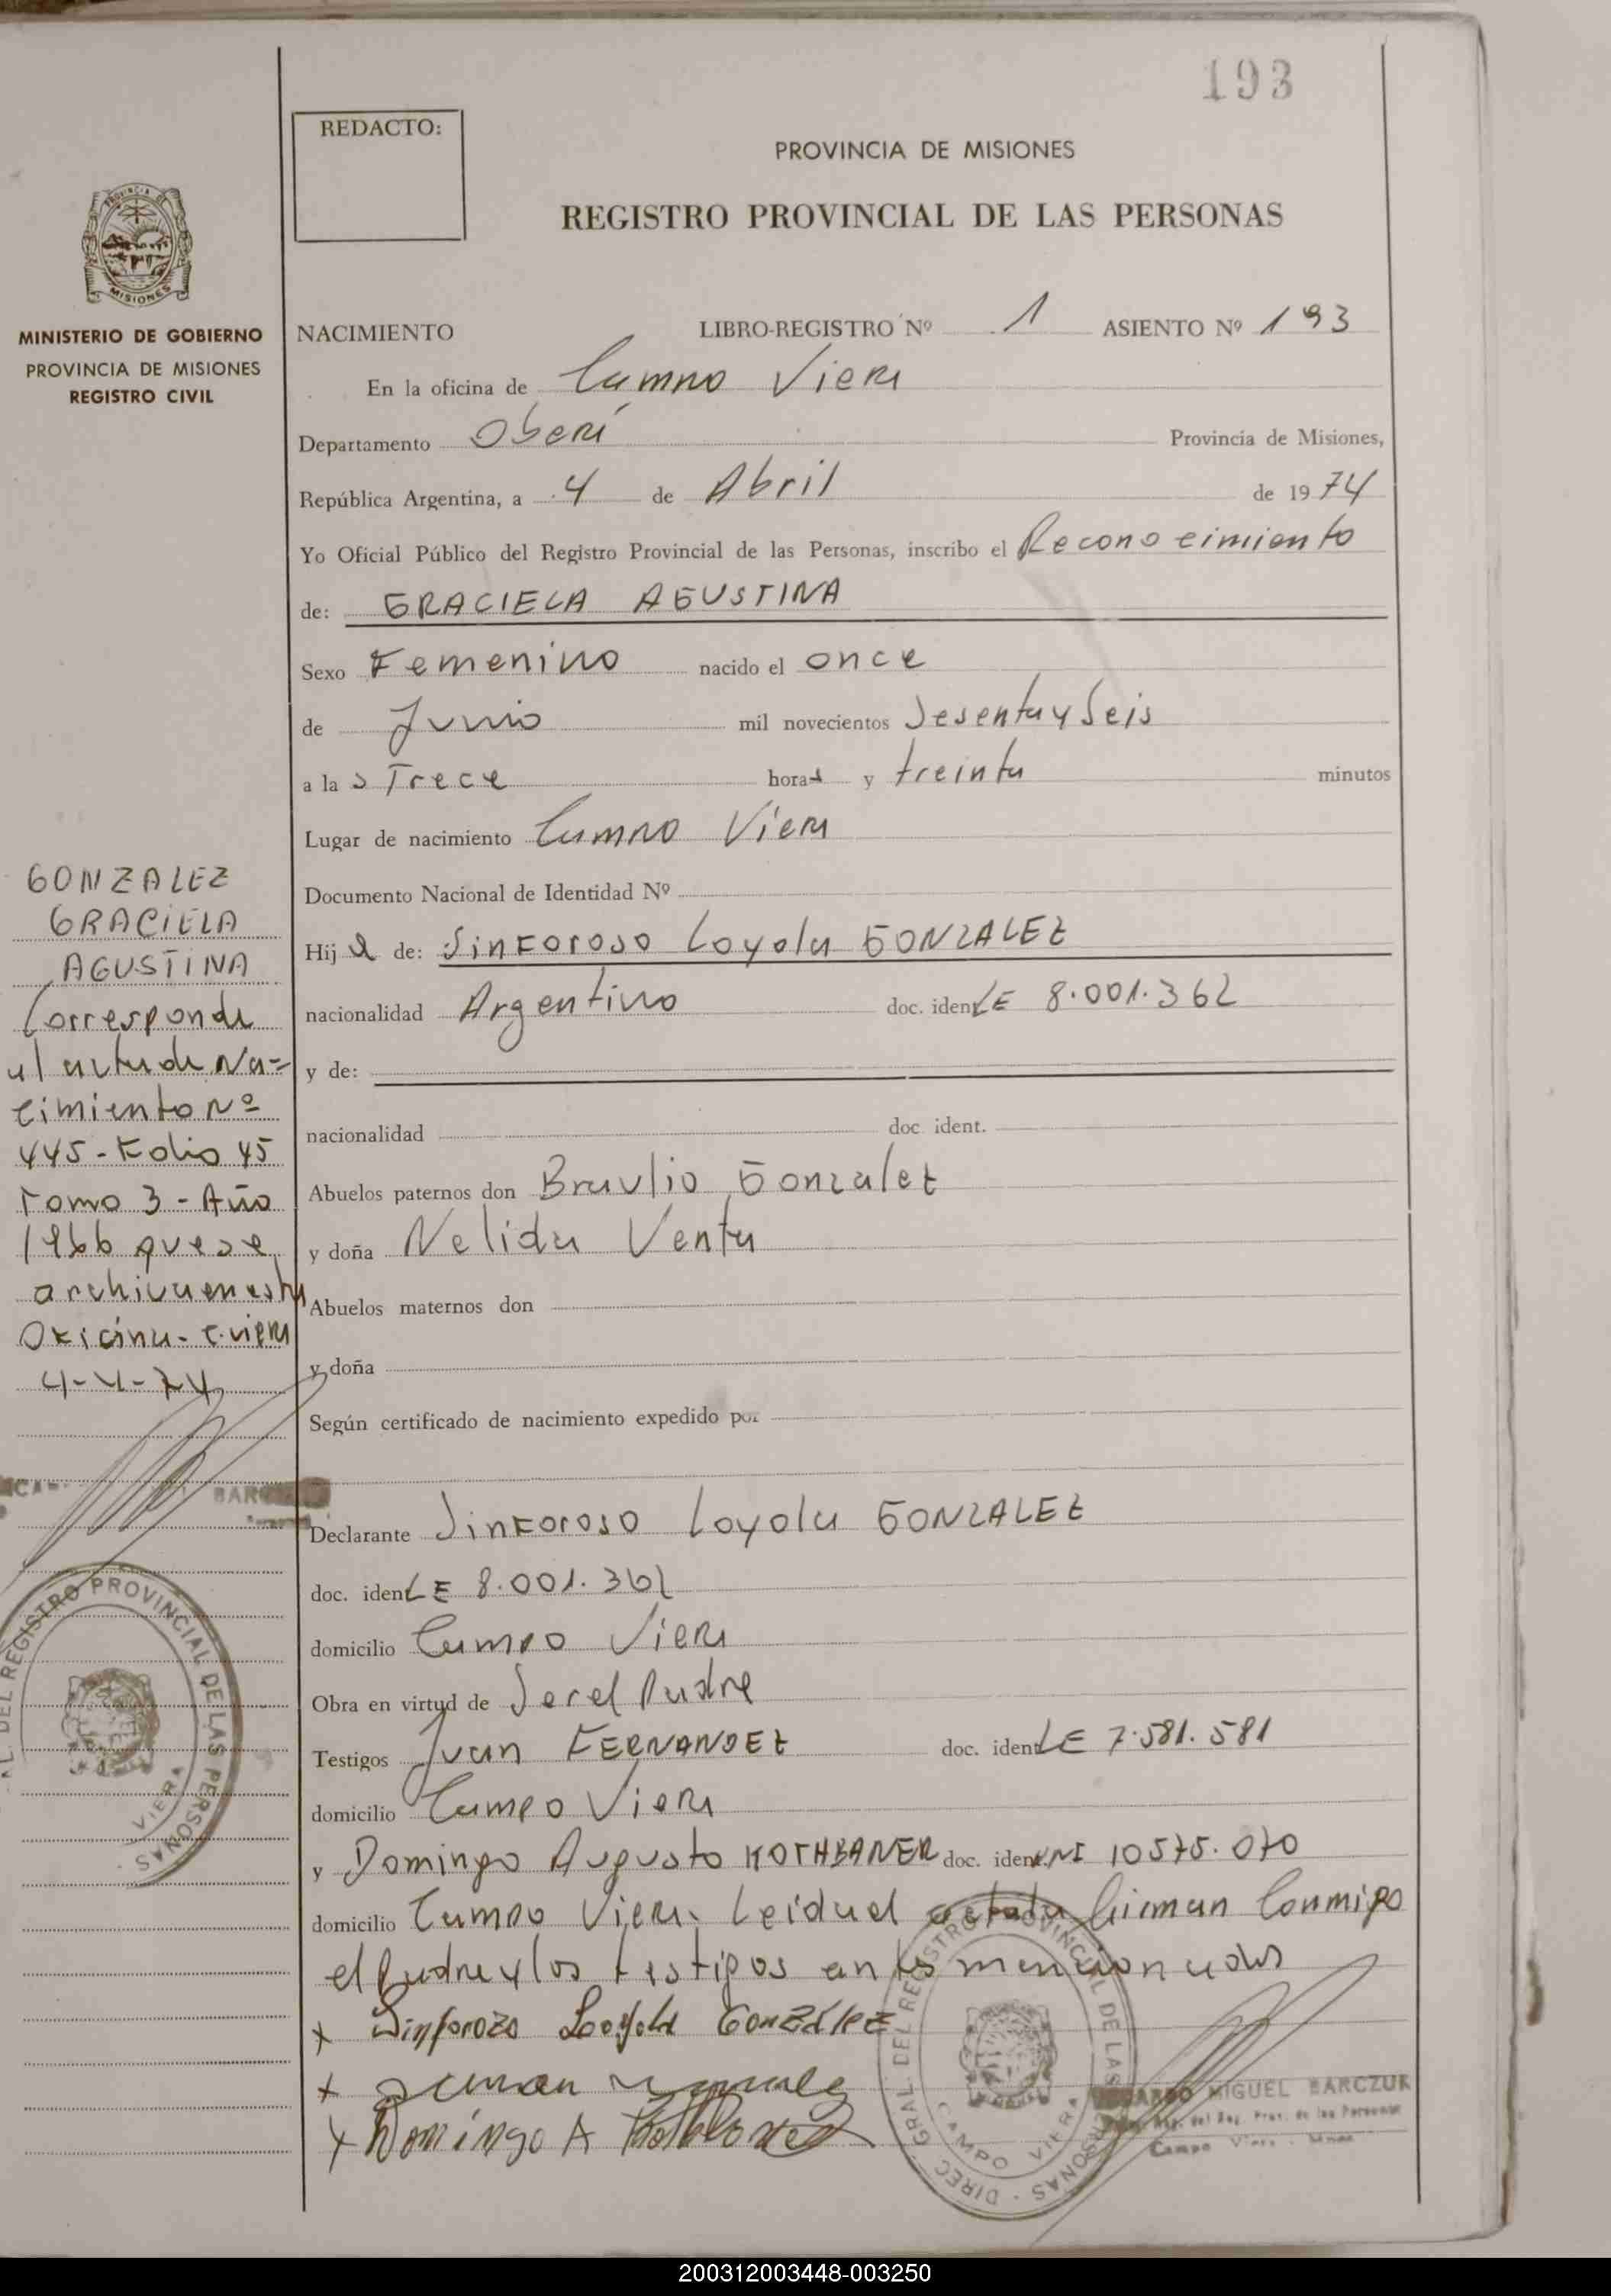 193
REDACTO:
PROVINCIA DE MISIONES
REGISTRO PROVINCIAL DE LAS PERSONAS
MISIONES
MINISTERIO DE GOBIERNO
PROVINCIA DE MISIONES
REGISTRO CIVIL
NACIMIENTO LIBRO-REGISTRO Nº 1 ASIENTO Nº 193
En la oficina de Campo Viera
Departamento Oberá Provincia de Misiones,
República Argentina, a 4 de Abril de 1974
Yo Oficial Público del Registro Provincial de las Personas, inscribo el Reconocimiento
de: GRACIELA AGUSTINA
Sexo Femenino nacido el once
de Junio mil novecientos Sesenta y Seis
a las Trece horas y treinta minutos
Lugar de nacimiento Campo Viera
Documento Nacional de Identidad Nº
Hija de: Sinforoso Loyola GONZALEZ
nacionalidad Argentino doc. ident LE 8.001.362
y de:
nacionalidad doc. ident.
Abuelos paternos don Braulio Gonzalez
y doña Nelida Venta
Abuelos maternos don
y doña
Según certificado de nacimiento expedido por
Declarante Sinforoso Loyola GONZALEZ
doc. ident LE 8.001.362
domicilio Campo Viera
Obra en virtud de Ser el Padre
Testigos Juan FERNANDEZ doc. ident LE 7.581.581
domicilio Campo Viera
y Domingo Augusto doc. ident 10575.070
domicilio Campo Viera. Leida el acta la firman Conmigo
el Padre y los testigos antes mencionados
x Sinforozo Loyola González
x
x Domingo A
GONZALEZ
GRACIELA
AGUSTINA
Corresponde
al acta de Na=
cimiento Nº
445 - Folio 45
Tomo 3 - Año
1966 que se
archiva en esta
Oficina - C. Viera
4-4-74
DEL REGISTRO PROVINCIAL DE LAS PERSONAS
VIERA
DIREC. GRAL. DEL REGISTRO PROVINCIAL DE LAS PERSONAS
CAMPO VIERA
MIGUEL BARCZUK
del Reg. Prov. de las Personas
Campo Viera
200312003448-003250